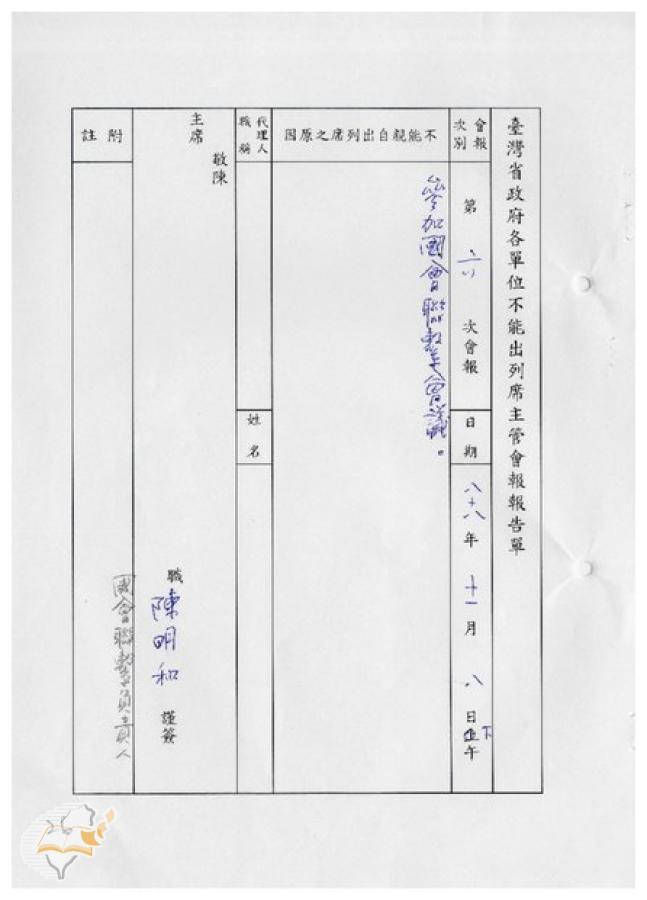 臺灣省政府各單位不能出列席主管會報報告單
會報次別
第 六 次會報
日期
八十八年 十一月 八 日下午
不能親自出列席之原因
參加國會聯繫會議。
代理人職稱
姓名
敬陳
主席
職 陳明和 謹簽
附註
國會聯繫負責人